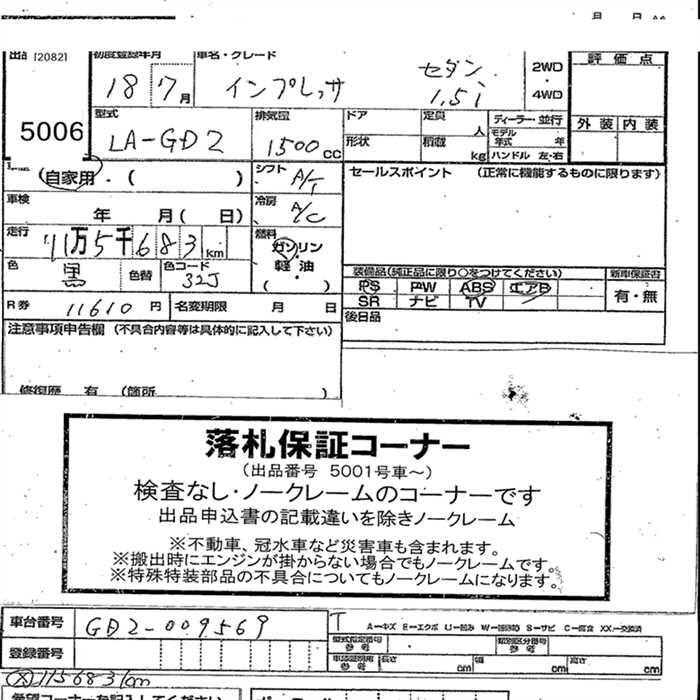 月 日
出品 [2082] 初度登録年月 車名・グレード 評価点
18 7月 インプレッサ セダン 1.5i 2WD・4WD
5006 型式 排気量 ドア 定員 ディーラー・並行 外装 内装
LA-GD2 1500cc 形状 人 積載 kg モデル年式 年 ハンドル 左・右
(自家用・( ) シフト A/T セールスポイント (正常に機能するものに限ります)
車検 年 月( 日) 冷房 A/C
走行 11万5千683km 燃料 ガソリン・軽油 ( )
色 黒 色替 色コード 32J
装備品(純正品に限り○をつけてください) 新車保証書
PS PW ABS エアB 有・無
SR ナビ TV
R券 11610円 名変期限 月 日 後日品
注意事項申告欄 (不具合内容等は具体的に記入して下さい)
修復歴 有 (箇所 )
落札保証コーナー
(出品番号 5001号車～)
検査なし・ノークレームのコーナーです
出品申込書の記載違いを除きノークレーム
※不動車、冠水車など災害車も含まれます。
※搬出時にエンジンが掛からない場合でもノークレームです。
※特殊特装部品の不具合についてもノークレームになります。
車台番号 GD2-009569
A―キズ E―エクボ U―凹み W―波凹 S―サビ C―腐食 XX―交換済
型式指定番号 参考 類別区分番号 参考
登録番号 車体証明用 参考 長さ cm 幅 cm 高さ cm
115683km
希望コーナーを記入してください